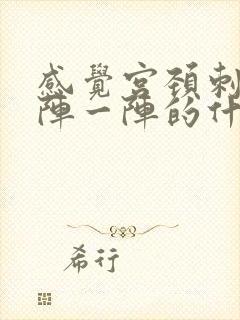 感覺宮頚刺
陣一陣的什
希行